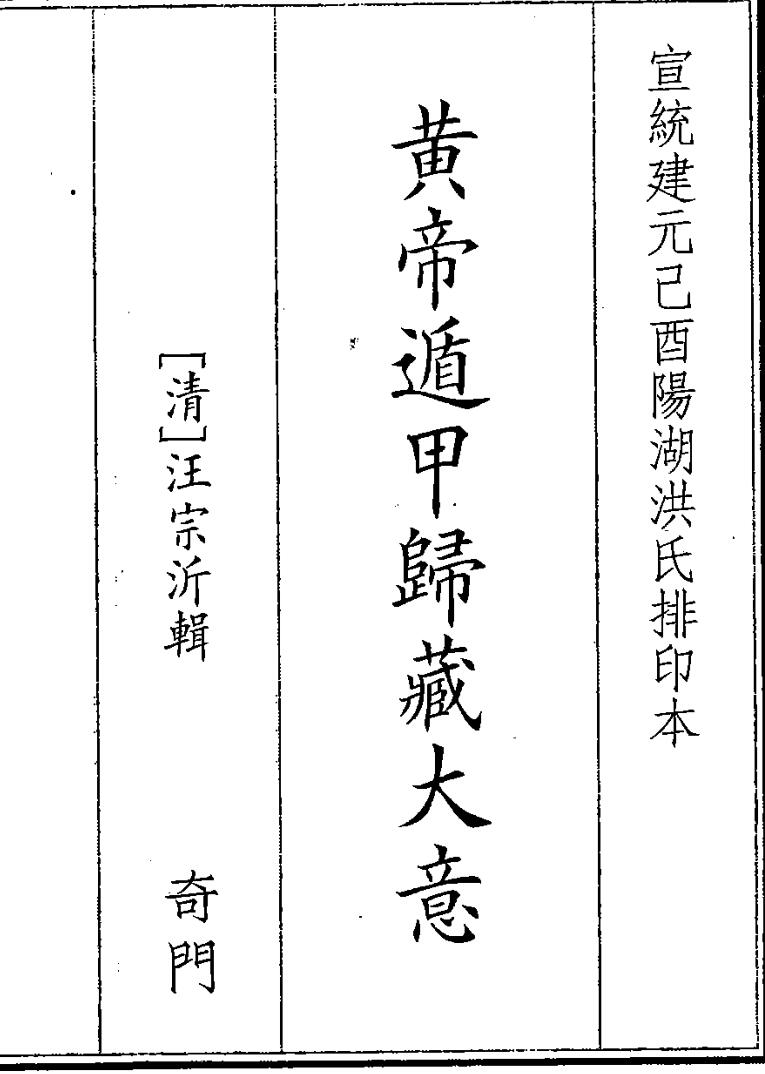 宣統建元己酉陽湖洪氏排印本
黃帝遁甲歸藏大意
[清]汪宗沂輯
奇門